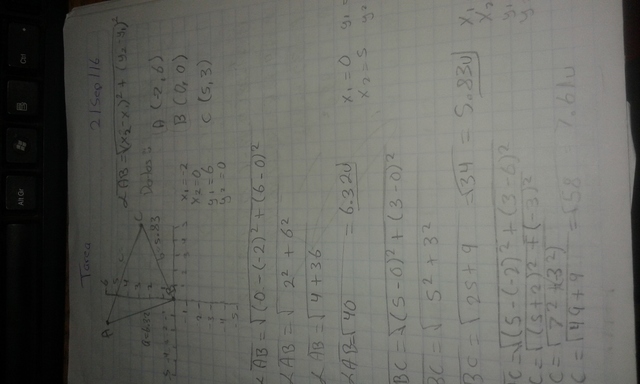 Tarea 21/Sep/16
∠AB = √(x₂-x₁)² + (y₂-y₁)²
A (-2, 6)
B (0, 0)
C (5, 3)
x₁=-2
x₂=0
y₁=6
y₂=0
A
C
5.83
∠AB = √(0-(-2)² + (6-0)²
∠AB = √2² + 6²
∠AB = √4 + 36
∠AB = √40 = 6.32u
x₁=0
x₂=5
BC = √(5-0)² + (3-0)²
BC = √5² + 3²
BC = √25 + 9 = √34 = 5.83u
C = √(5-(-2)² + (3-6)²
C = √(5+2)² + (-3)²
C = √7² + (3²)
C = √49 + 9 = √58 7.61u
Alt Gr
Ctrl